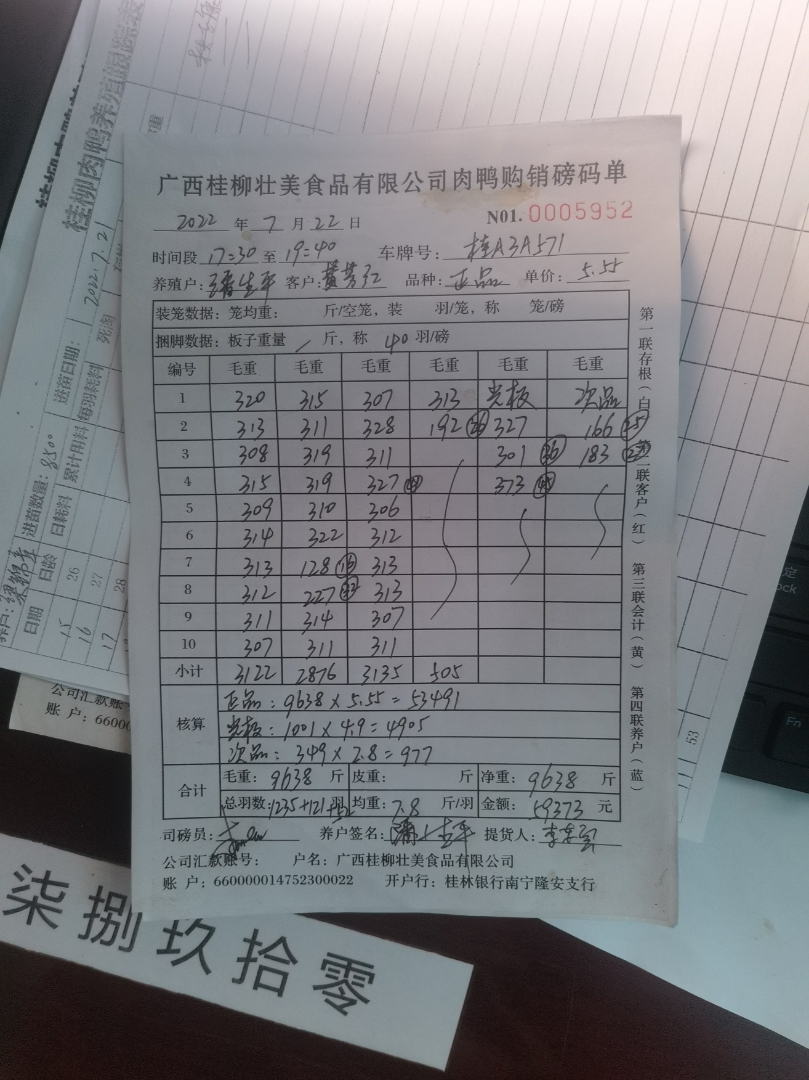 广西桂柳壮美食品有限公司肉鸭购销磅码单
2022 年 7 月 22 日 NO1. 0005952
时间段 17=30 至 19=40 车牌号: 桂A3A571
养殖户: 生平 客户: 黄芳红 品种: 正品 单价: 5.55
装笼数据: 笼均重: 斤/空笼, 装 羽/笼, 称 笼/磅
捆脚数据: 板子重量 / 斤, 称 40 羽/磅
编号 毛重 毛重 毛重 毛重 毛重 毛重
1 320 315 307 313 光板 次品
2 313 311 328 192 327 166
3 308 319 311 301 183
4 315 319 327 373
5 309 310 306
6 314 322 312
7 313 128 313
8 312 227 313
9 311 314 307
10 307 311 311
小计 3122 2876 3135 505
核算
正品: 9638 × 5.55 = 53491
光板: 1001 × 4.9 = 4905
次品: 349 × 2.8 = 977
合计 毛重: 9638 斤 皮重: 斤 净重: 9638 斤
总羽数: 1235+121+ 羽 均重: 7.8 斤/羽 金额: 59373 元
司磅员: 养户签名: 提货人:
公司汇款账号: 户名: 广西桂柳壮美食品有限公司
账 户: 660000014752300022 开户行: 桂林银行南宁隆安支行
第一联存根(白) 第二联客户(红) 第三联会计(黄) 第四联养户(蓝)
桂柳肉鸭养殖跟踪表
进苗日期: 2022.7.21
进苗数量: 8500
日期 日龄 日耗料 累计用料 每羽耗料 死淘
15 26
16 27
17 28
公司汇款账
账 户: 6600
53
柒捌玖拾零